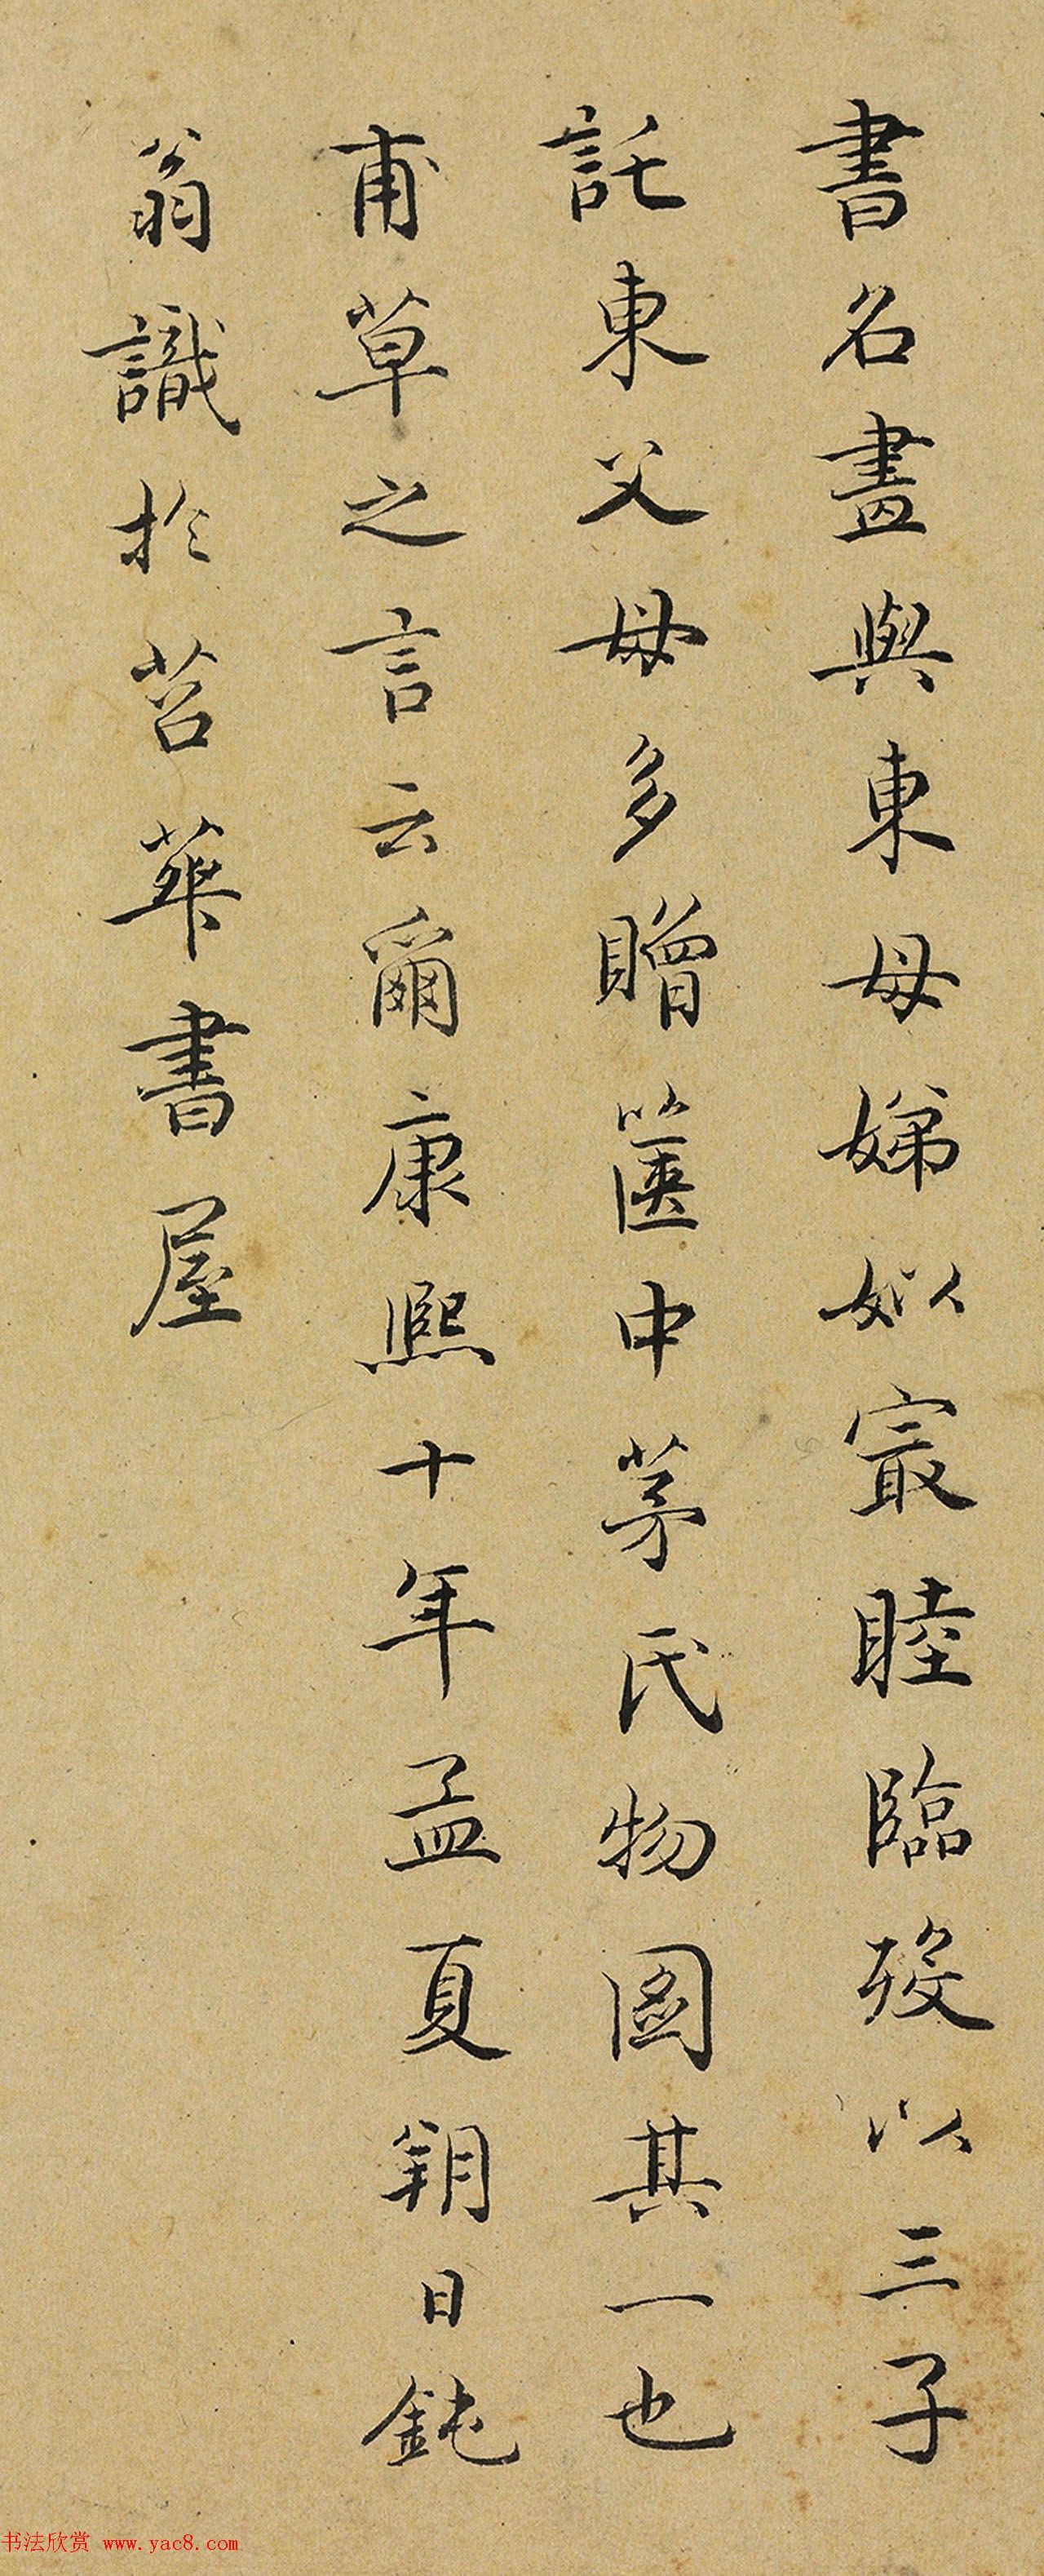 書名畫與東母娣姒寂睦臨歿以三子
託東父母多贈篋中茅氏物圖其一也
甫草之言云爾康熙十年孟夏朔日鈍
翁識於苕華書屋
书法欣赏 www.yac8.com